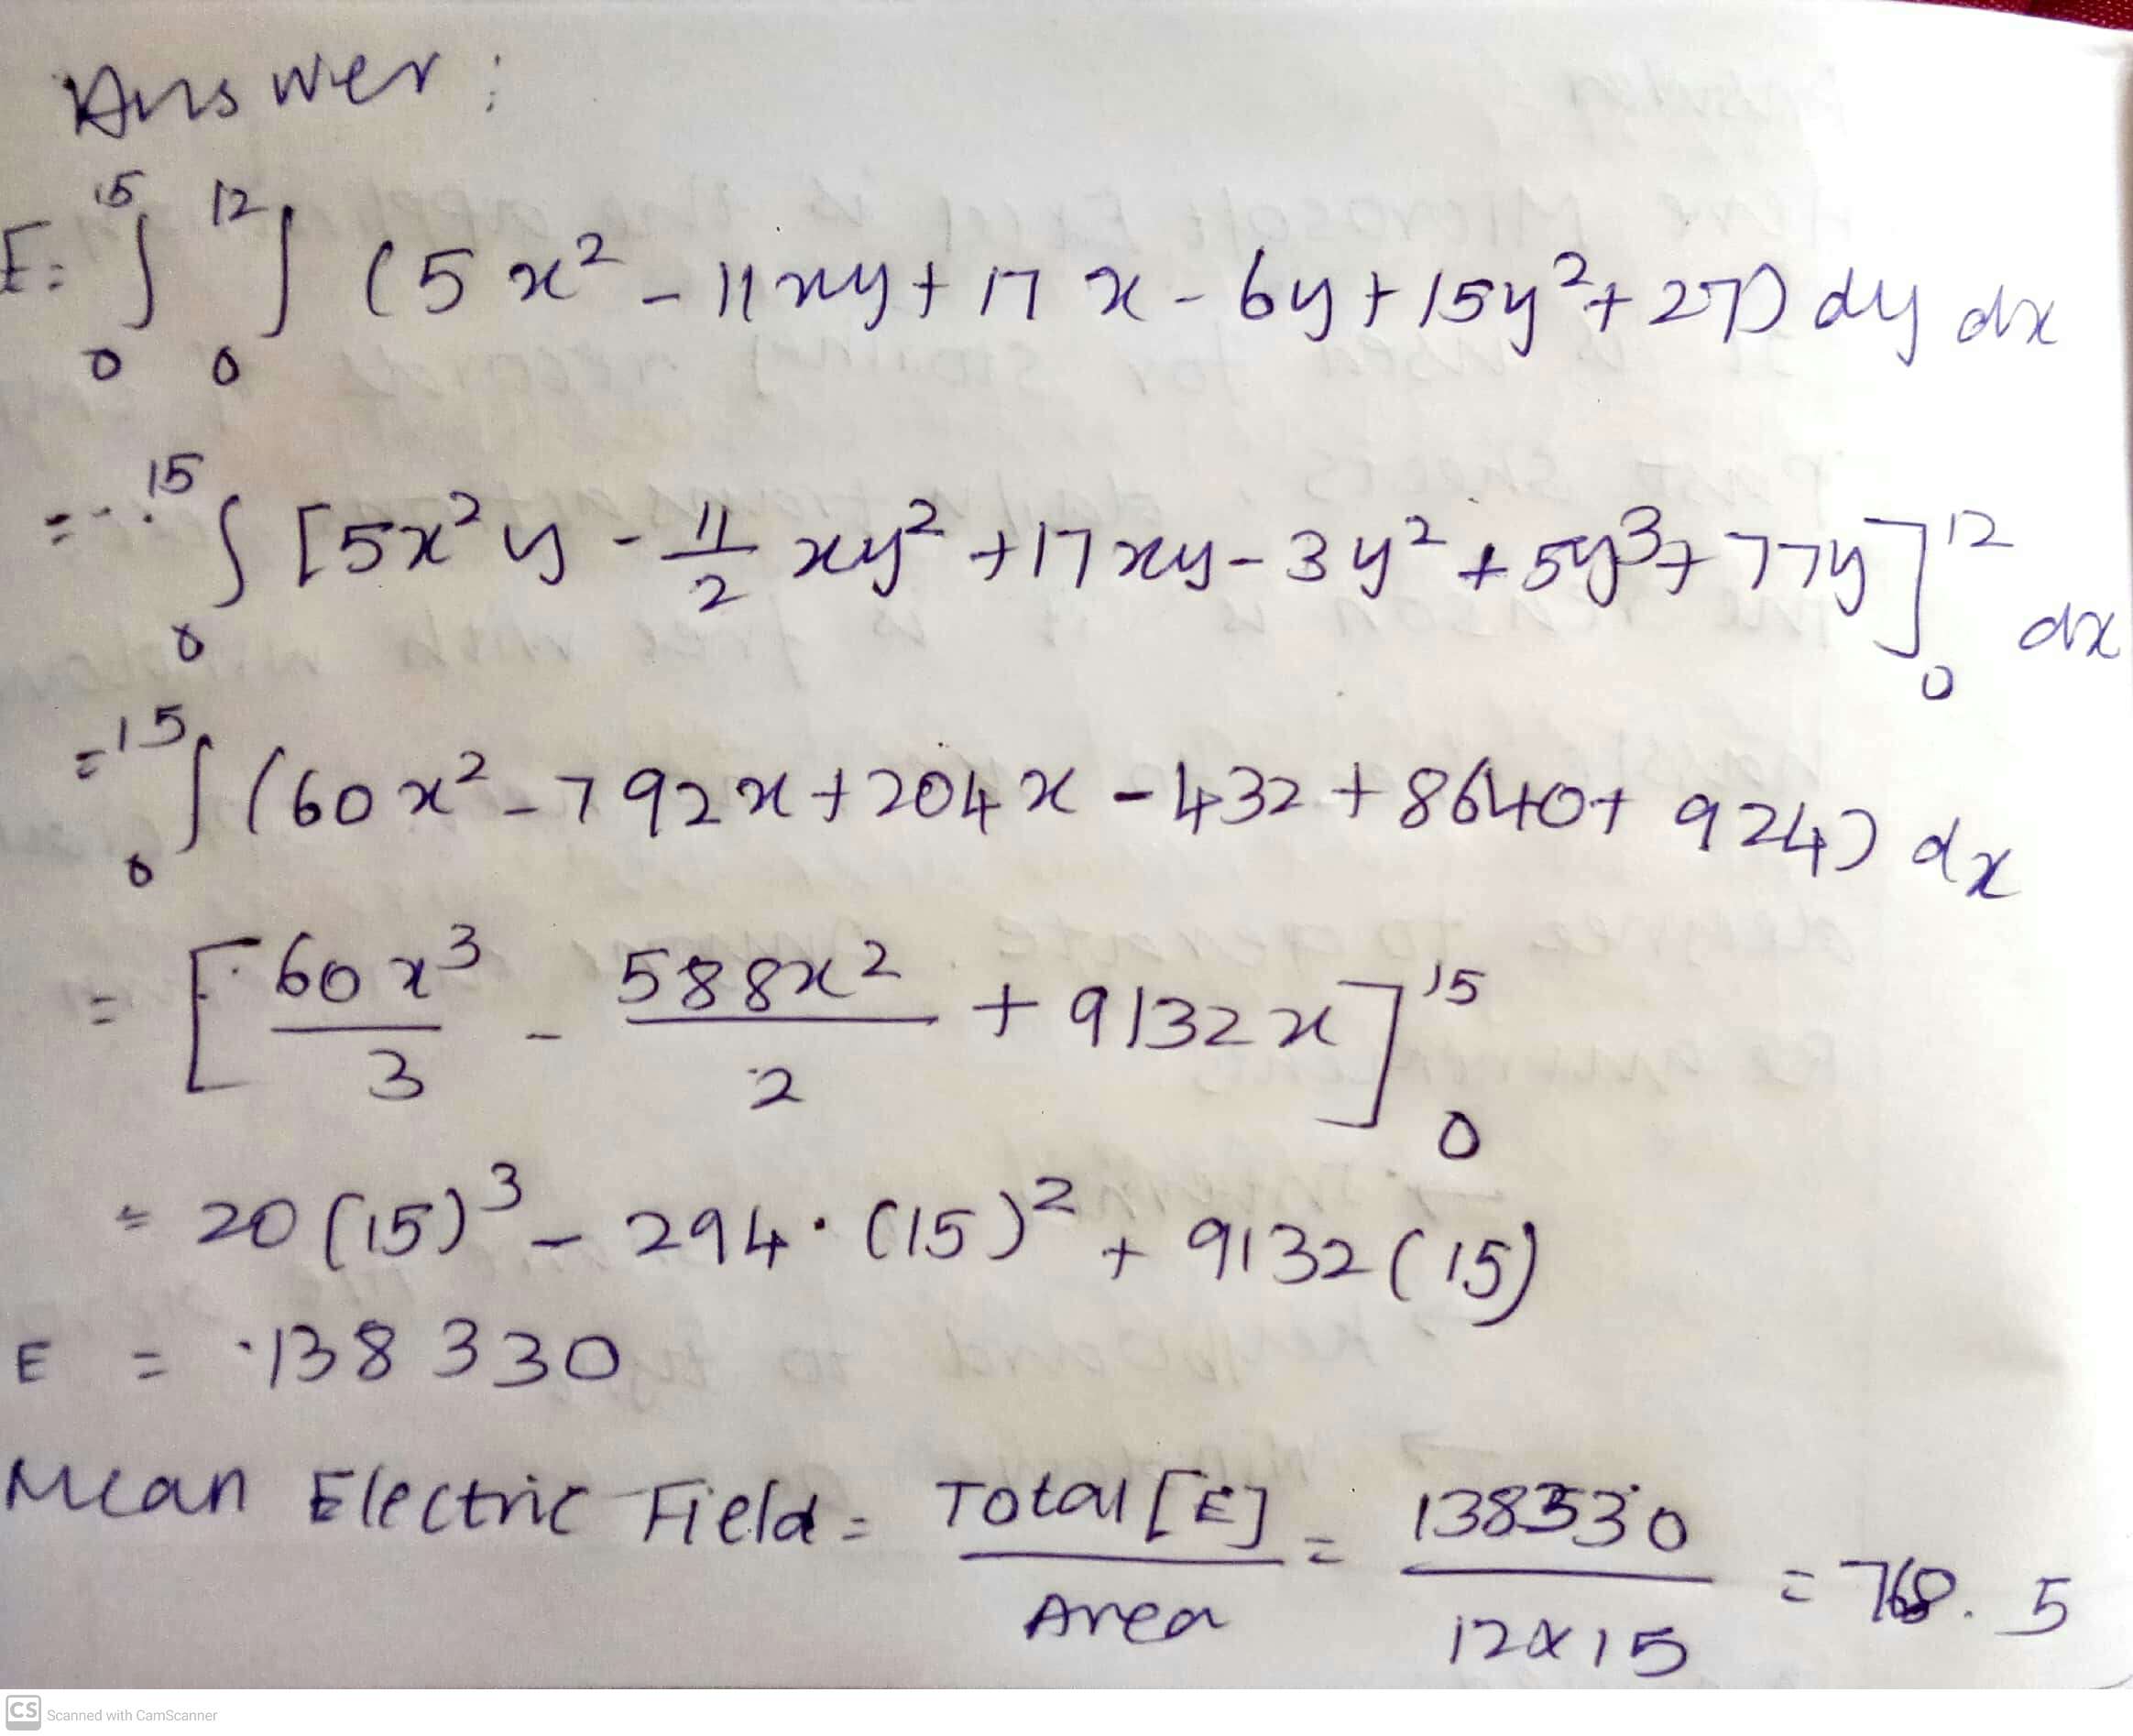 Answer:
E = ∫₀¹⁵ ∫₀¹² (5x² - 11xy + 17x - 6y + 15y² + 27) dy dx
= ∫₀¹⁵ [5x²y - 11/2 xy² + 17xy - 3y² + 5y³ + 77y]₀¹² dx
= ∫₀¹⁵ (60x² - 792x + 204x - 432 + 8640 + 924) dx
= [60x³/3 - 588x²/2 + 9132x]₀¹⁵
= 20(15)³ - 294·(15)² + 9132(15)
E = 138330
Mean Electric Field = Total [E]/Area = 138330/12×15 = 768.5
CS Scanned with CamScanner